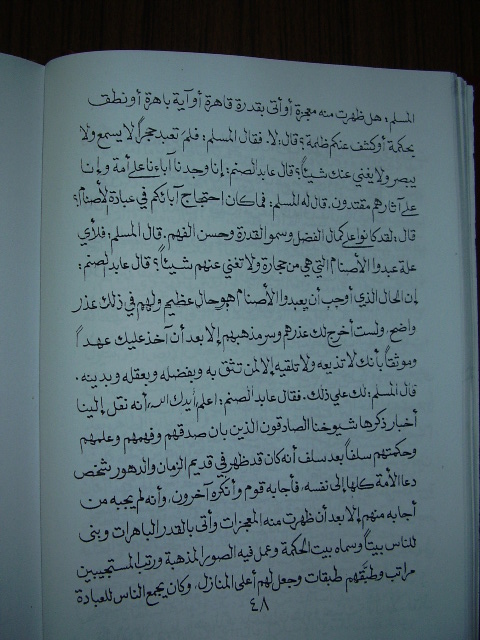 المسلم: هل ظهرت منه معجزة أو أتى بقدرة قاهرة أو آية باهرة أو نطق
بحكمة أو كشف عنكم ظلمة؟ قال: لا. فقال المسلم: فلمَ تعبد حجراً لا يسمع ولا
يبصر ولا يغني عنك شيئاً؟ قال عابد الصنم: إنا وجدنا آباءنا على أمة وإنا
على آثارهم مقتدون. قال له المسلم: فما كان احتجاج آبائكم في عبادة الأصنام؟
قال: لقد كانوا على كمال الفضل وسمو القدرة وحسن الفهم. قال المسلم: فلأي
علة عبدوا الأصنام التي هي من حجارة ولا تغني عنهم شيئاً؟ قال عابد الصنم:
إن الحال الذي أوجب أن يعبدوا الأصنام هو حال عظيم ولهم في ذلك عذر
واضح، ولست أخرج لك عذرهم وسر مذهبهم إلا بعد أن آخذ عليك عهداً
وموثقاً بأنك لا تذيعه ولا تلقيه إلا لمن تثق به وبفضله وبعقله وبدينه.
قال المسلم: لك علي ذلك. فقال عابد الصنم: اعلم أيدك الله، أنه نقل إلينا
أخبار ذكرها شيوخنا الصادقون الذين بان صدقهم وفهمهم وعلمهم
وحكمتهم سلفاً بعد سلف أنه كان قد ظهر في قديم الزمان والدهور شخص
دعا الأمة كلها إلى نفسه، فأجابه قوم وأنكره آخرون، وأنه لم يجبه من
أجابه منهم إلا بعد أن ظهرت منه المعجزات وأتى بالقدر الباهرات وبنى
للناس بيتاً وسماه بيت الحكمة وعمل فيه الصور المذهبة ورتب المستجيبين
مراتب وطبقهم طبقات وجعل لهم أعلى المنازل، وكان يجمع الناس للعبادة
٤٨